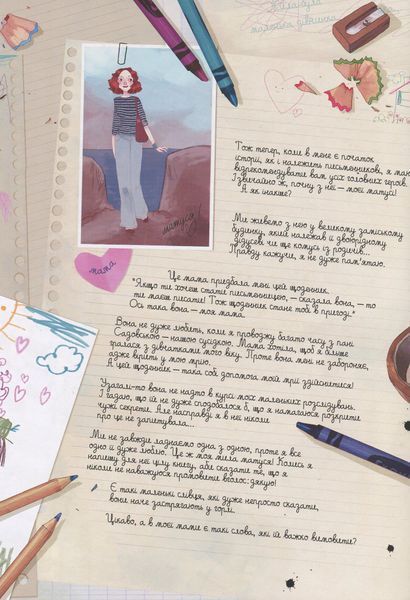 Жила була
маленька дівчинка
Тож тепер, коли в мене є початок
історії, як і належить письменникові, я маю
відрекомендувати вам усіх головних героїв.
І звичайно ж, почну з неї — моєї матусі!
А як інакше?
матуся
мама
Ми живемо з нею у великому заміському
будинку, який належав її двоюрідному
дідусеві чи ще комусь із родичів...
Правду кажучи, я не дуже пам'ятаю.
Це мама придбала мені цей щоденник.
"Якщо ти хочеш стати письменницею, — сказала вона, — то
ти маєш писати! Тож щоденник стане тобі в пригоді."
Ось така вона — моя мама.
Вона не дуже любить, коли я проводжу багато часу з пані
Садовською — нашою сусідкою. Мама хотіла, щоб я більше
гралася з дівчатками мого віку. Проте вона мені не забороняє,
адже вірить у мою мрію.
А цей щоденник — така собі допомога моїй мрії здійснитися!
Узагалі-то вона не надто в курсі моїх маленьких розслідувань.
І гадаю, що їй не дуже сподобалося б, що я намагаюся розкрити
чужі секрети. Але насправді я в неї ніколи
про це не запитувала...
Ми не завжди ладнаємо одна з одною, проте я все
одно її дуже люблю. Це ж моя мила матуся! Колись я
напишу для неї цілу книгу, аби сказати те, що я
ніколи не наважуюся промовити вголос: дякую!
Є такі маленькі слівця, які дуже непросто сказати,
вони наче застрягають у горлі.
Цікаво, а в моєї мами є такі слова, які їй важко вимовити?